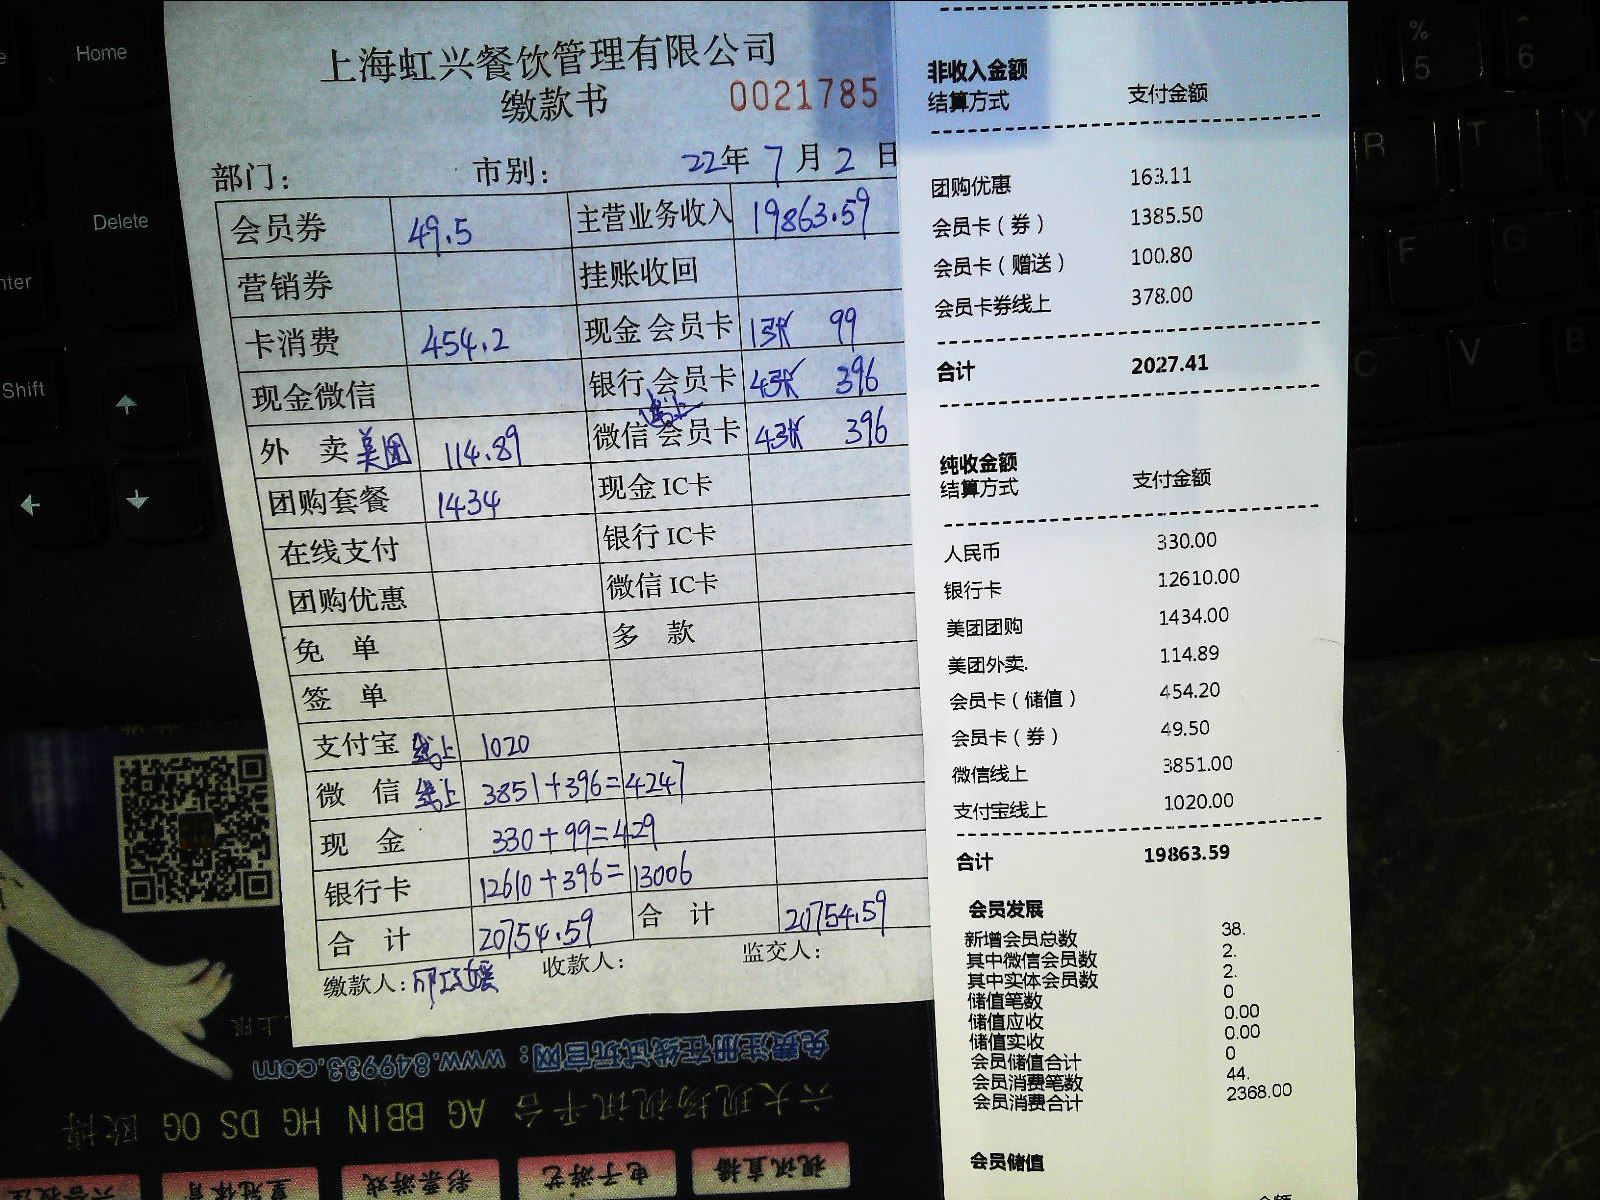 上海虹兴餐饮管理有限公司
缴款书
0021785
部门:
市别:
22年 7月 2日
会员券 49.5 主营业务收入 19863.59
营销券 挂账收回
卡消费 454.2 现金会员卡 1张 99
现金微信 银行会员卡 4张 396
外 卖 美团 114.89 微信 线上 会员卡 4张 396
团购套餐 1434 现金IC卡
在线支付 银行IC卡
团购优惠 微信IC卡
免 单 多 款
签 单
支付宝 线上 1020
微 信 线上 3851+396=4247
现 金 330+99=429
银行卡 12610+396=13006
合 计 20754.59 合 计 20754.59
缴款人: 收款人: 监交人:
非收入金额
结算方式 支付金额
团购优惠 163.11
会员卡(券) 1385.50
会员卡(赠送) 100.80
会员卡券线上 378.00
合计 2027.41
纯收金额
结算方式 支付金额
人民币 330.00
银行卡 12610.00
美团团购 1434.00
美团外卖. 114.89
会员卡(储值) 454.20
会员卡(券) 49.50
微信线上 3851.00
支付宝线上 1020.00
合计 19863.59
会员发展
新增会员总数 38.
其中微信会员数 2.
其中实体会员数 2.
储值笔数 0
储值应收 0.00
储值实收 0.00
会员储值合计 0
会员消费笔数 44.
会员消费合计 2368.00
会员储值
Home
Delete
Shift
%
5
6
R
T
Y
F
G
C
V
B
免费注册在线试玩官网：www.84933.com
六大现场视讯平台 AG BBIN HG DS OG 欧博
视讯直播
电子游艺
彩票游戏
皇冠体育
六合投注